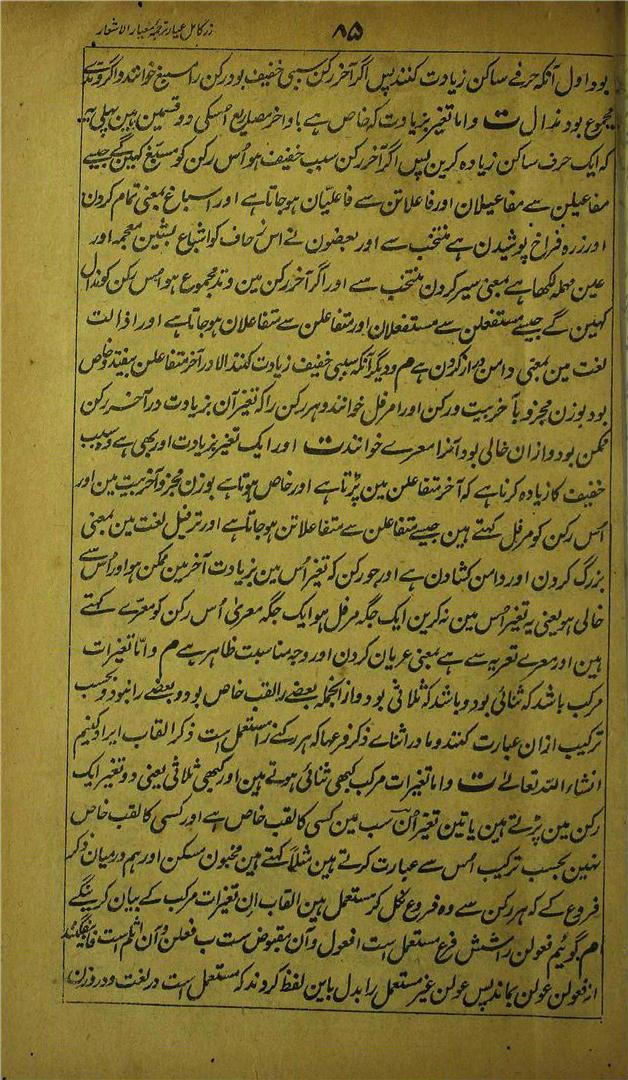 زر کامل عیار ترجمہ معیار الاشعار
۸۵
بود اول آنکہ حرفے ساکن زیادت کنند پس اگر آخر رکن سببی خفیف بود رکن را مسبغ خوانند و اگر وتدے
مجموع بود مذال ت واما تغیر بزیادت کہ خاص ہے باواخر مصاریع اسکی دو قسمین ہین پہلی یہ
کہ ایک حرف ساکن زیادہ کرین پس اگر آخر رکن سبب خفیف ہو اُس رکن کو مسبغ کہین گے جیسے
مفاعیلن سے مفاعیلان اور فاعلاتن سے فاعلیّان ہوجاتا ہے اور اسباغ بمعنی تمام کردن
اور زرہ فراخ پوشیدن ہے منتخب سے اور بعضون نے اس زحاف کو اشباع بشین معجمہ اور
عین مہملہ لکھا ہے بمعنی سیر کردن منتخب سے اور اگر آخر رکن مین وتد مجموع ہو اُس رکن کو مذال
کہین گے جیسے مستفعلن سے مستفعلان اور متفاعلن سے متفاعلان ہوجاتا ہے اور اذالت
لغت مین بمعنی دامن دراز کردن ہے م و دیگر آنکہ سببی خفیف زیادت کنند الا در آخر متفاعلن بیفتد و خاص
بود بوزن مجزو بآخر بیت و رکن اورا مرفل خوانند و ہر رکن را کہ تغیر آن بزیادت در آخر رکن
ممکن بود و ازان خالی بود آنرا معرے خوانند ت اور ایک تغیر بزیادت اور بھی ہے وہ سبب
خفیف کا زیادہ کرنا ہے کہ آخر متفاعلن مین پڑتا ہے اور خاص ہوتا ہے بوزن مجزو آخر بیت مین اور
اُس رکن کو مرفل کہتے ہین جیسے متفاعلن سے متفاعلاتن ہوجاتا ہے اور ترفیل لغت مین بمعنی
بزرگ کردن اور دامن کشادن ہے اور جو رکن کہ تغیر اُس مین بزیادت آخر مین ممکن ہو اور اُس سے
خالی ہو یعنی یہ تغیر اُس مین نہ کرین ایک جگہ مرفل ہو ایک جگہ معریٰ اُس رکن کو معرّے کہتے
ہین اور معرے تعریہ سے ہے بمعنی عریان کردن اور وجہ مناسبت ظاہر ہے م واما تغیرات
مرکب باشد کہ ثنائی بود و باشد کہ ثلاثی بود و از انجملہ بعضے را لقب خاص بود و بعضے را نبود و بحسب
ترکیب ازان عبارت کنند و ما در اثناے ذکر فرعہا کہ ہر رکنے را مستعمل است ذکر القاب ایراد کنیم
انشاء اللہ تعالےٰ ت واما تغیرات مرکب کبھی ثنائی ہوتے ہین اور کبھی ثلاثی یعنی دو تغیر ایک
رکن مین پڑتے ہین یا تین تغیر اُن سب مین کسی کا لقب خاص ہے اور کسی کا لقب خاص
نہین بحسب ترکیب اُس سے عبارت کرتے ہین مثلاً کہتے ہین مخبون مسکن اور ہم درمیان ذکر
فروع کے کہ ہر رکن سے وہ فروع نکل کر مستعمل ہین القاب ان تغیرات مرکب کے بیان کرینگے
م گوئیم فعولن را شش فرع مستعمل است ا فعول و آن مقبوض ست ب فعلن و آن اثلم است فا بیفگنند
از فعولن عولن بماند پس عولن غیر مستعمل را بدل باین لفظ کردند کہ مستعمل است در لغت و در وزن